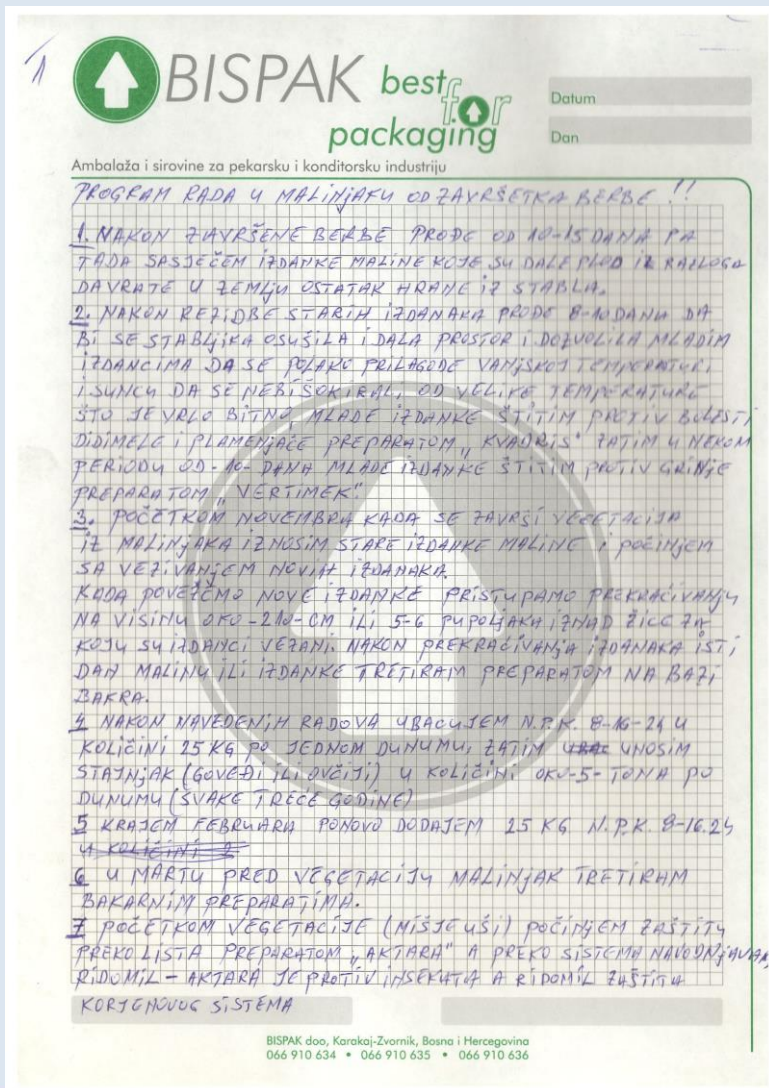 1
BISPAK best for packaging
Datum
Dan
Ambalaža i sirovine za pekarsku i konditorsku industriju
PROGRAM RADA U MALINJAKU OD ZAVRŠETKA BERBE !!
1. NAKON ZAVRŠENE BERBE PROĐE OD 10-15 DANA PA
TADA SASJEČEM IZDANKE MALINE KOJE SU DALE PLOD IZ RAZLOGA
DA VRATE U ZEMLJU OSTATAK HRANE IZ STABLA.
2. NAKON REZIDBE STARIH IZDANAKA PROĐE 8-10 DANA DA
BI SE STABLJIKA OSUŠILA I DALA PROSTOR I DOZVOLILA MLADIM
IZDANCIMA DA SE POLAKO PRILAGODE VANJSKOJ TEMPERATURI
I SUNCU DA SE NEBI ŠOKIRALI OD VELIKE TEMPERATURE
ŠTO JE VRLO BITNO MLADE IZDANKE ŠTITIM PROTIV BOLESTI
DIDIMELE I PLAMENJAČE PREPARATOM „KVADRIS" ZATIM U NEKOM
PERIODU OD -10- DANA MLADE IZDANKE ŠTITIM PROTIV GRINJE
PREPARATOM „VERTIMEK".
3. POČETKOM NOVEMBRA KADA SE ZAVRŠI VEGETACIJA
IZ MALINJAKA IZNOSIM STARE IZDANKE MALINE I POČINJEM
SA VEZIVANJEM NOVIH IZDANAKA.
KADA POVEŽEMO NOVE IZDANKE PRISTUPAMO PREKRAĆIVANJU
NA VISINU OKO -210- CM ILI 5-6 PUPOLJAKA IZNAD ŽICE ZA
KOJU SU IZDANCI VEZANI. NAKON PREKRAĆIVANJA IZDANAKA ISTI
DAN MALINU ILI IZDANKE TRETIRAM PREPARATOM NA BAZI
BAKRA.
4 NAKON NAVEDENIH RADOVA UBACUJEM N.P.K. 8-16-24 U
KOLIČINI 25 KG PO JEDNOM DUNUMU, ZATIM UNOSIM
STAJNJAK (GOVEĐI ILI OVČIJI) U KOLIČINI OKO -5- TONA PO
DUNUMU (SVAKE TREĆE GODINE)
5 KRAJEM FEBRUARA PONOVO DODAJEM 25 KG N.P.K. 8-16.24
U KOLIČINI
6 U MARTU PRED VEGETACIJU MALINJAK TRETIRAM
BAKARNIM PREPARATIMA.
7 POČETKOM VEGETACIJE (MIŠJE UŠI) POČINJEM ZAŠTITU
PREKO LISTA PREPARATOM „AKTARA" A PREKO SISTEMA NAVODNJAVANJ
RIDOMIL - AKTARA JE PROTIV INSEKATA A RIDOMIL ZAŠTITA
KORJENOVOG SISTEMA
BISPAK doo, Karakaj-Zvornik, Bosna i Hercegovina
066 910 634 • 066 910 635 • 066 910 636